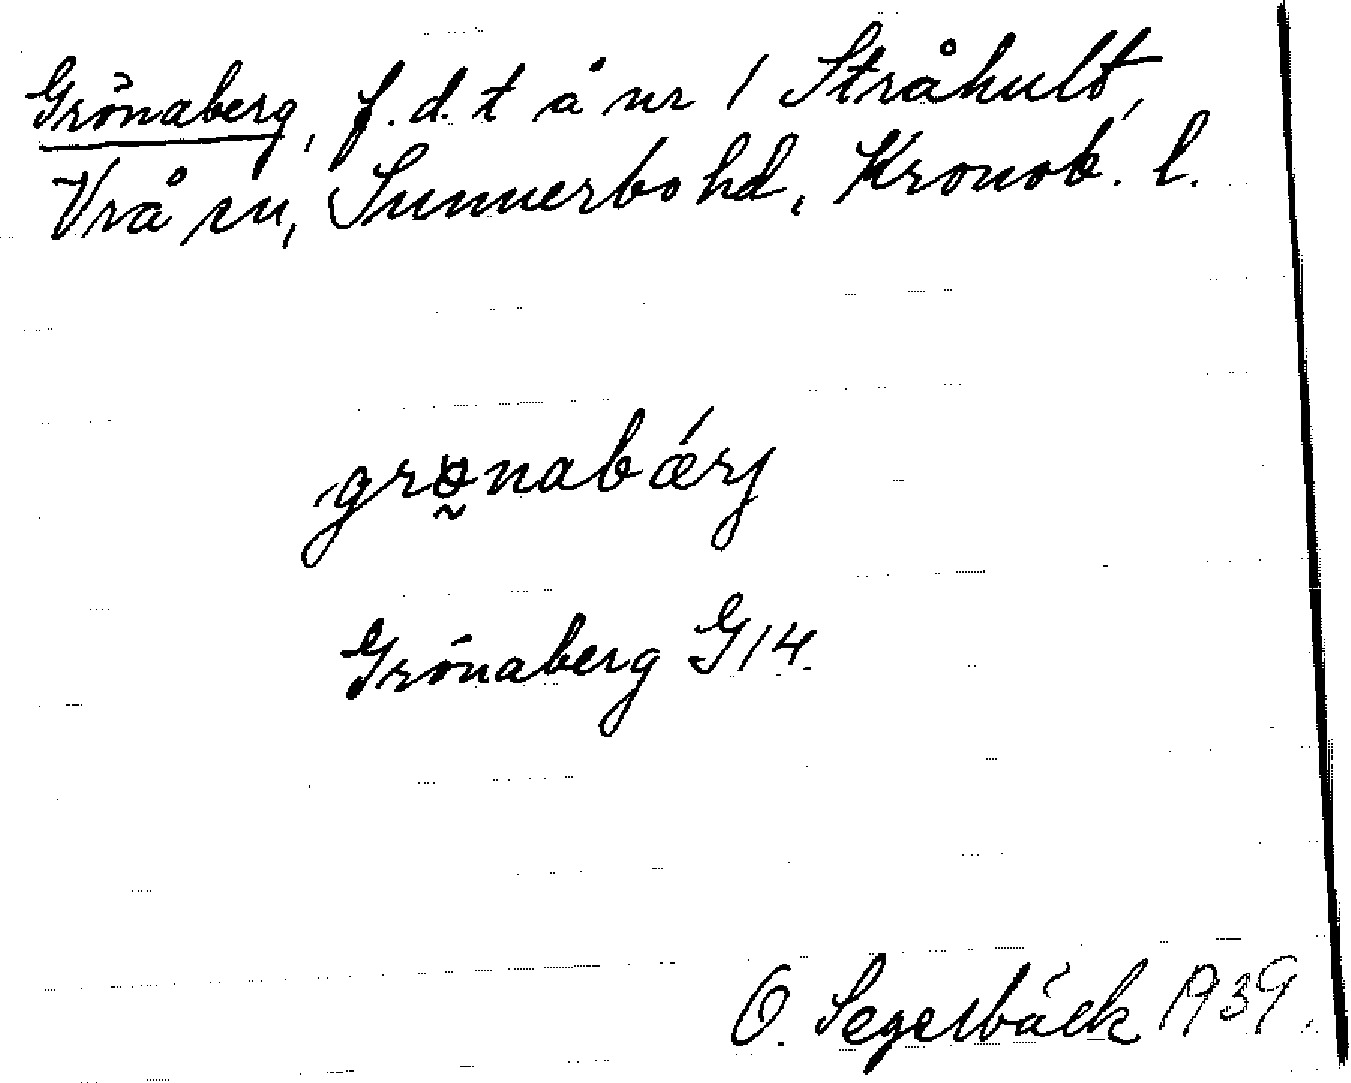 Grönaberg, f.d. t å nr 1 Stråhult,
Vrå sn, Sunnerbo hd, Kronob. l.
grø̰nabǽrj
Grönaberg G14.
O. Segerbäck 1939.